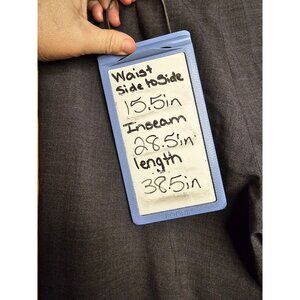 Waist
side to side
15.5in
Inseam
28.5in
length
38.5in